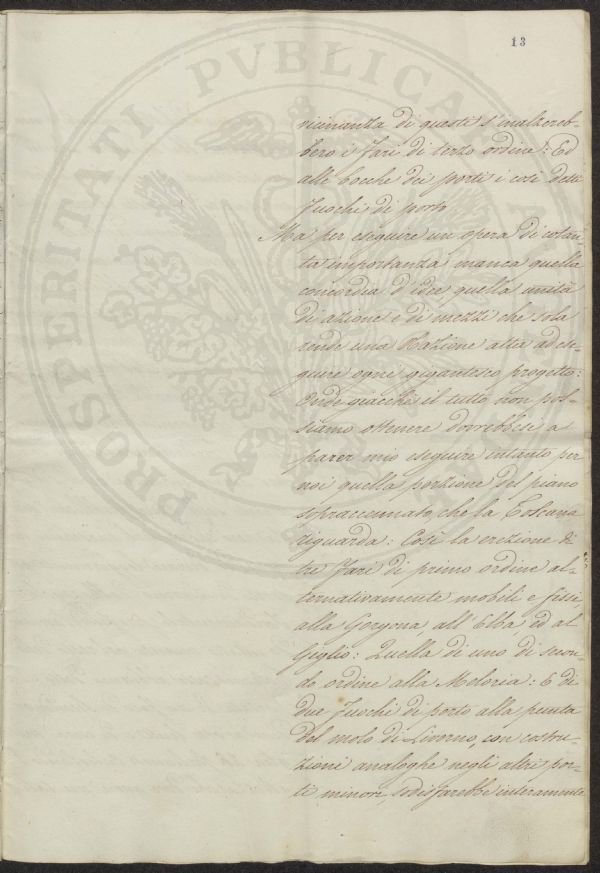 13
vicinanza di questi s'inalzereb-
bero i Fari di terzo ordine: Ed
alle bocche dei porti i così detti
Fuochi di porto
Ma per eseguire un opera di cotan-
ta importanza manca quella
concordia d'idee quella unità
di azione e di mezzi che sola
rende una Nazione atta ad ese-
guire ogni gigantesco progetto:
Onde giacchè il tutto non pos-
siamo ottenere dovrebbesi a
parer mio eseguire intanto per
noi quella porzione del piano
sopraccennato, che la Toscana
riguarda: Così la erezione di
tre Fari di primo ordine al-
ternativamente mobili e fissi,
alla Gorgona, all'Elba, ed al
Giglio: Quella di uno di secon-
do ordine alla Meloria: E di
due Fuochi di porto alla punta
del molo di Livorno, con costru-
zioni analoghe negli altri por-
ti minori, sodisfarebbe interamente
PROSPERITATI PVBLICAE